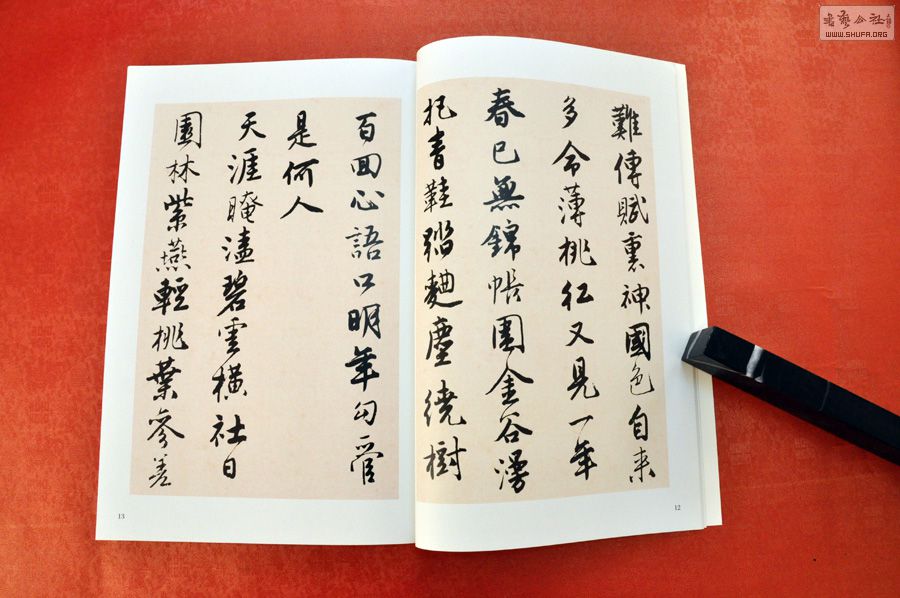 書藝公社
WWW.SHUFA.ORG
難傳賦裏神國色自来
多命薄桃紅又見一年
春已無錦帳圍金谷漫
把青鞋踏麯塵繞樹
12
百回心語口明年勾管
是何人
天涯晻溘碧雲橫社日
園林紫燕輕桃葉參差
13